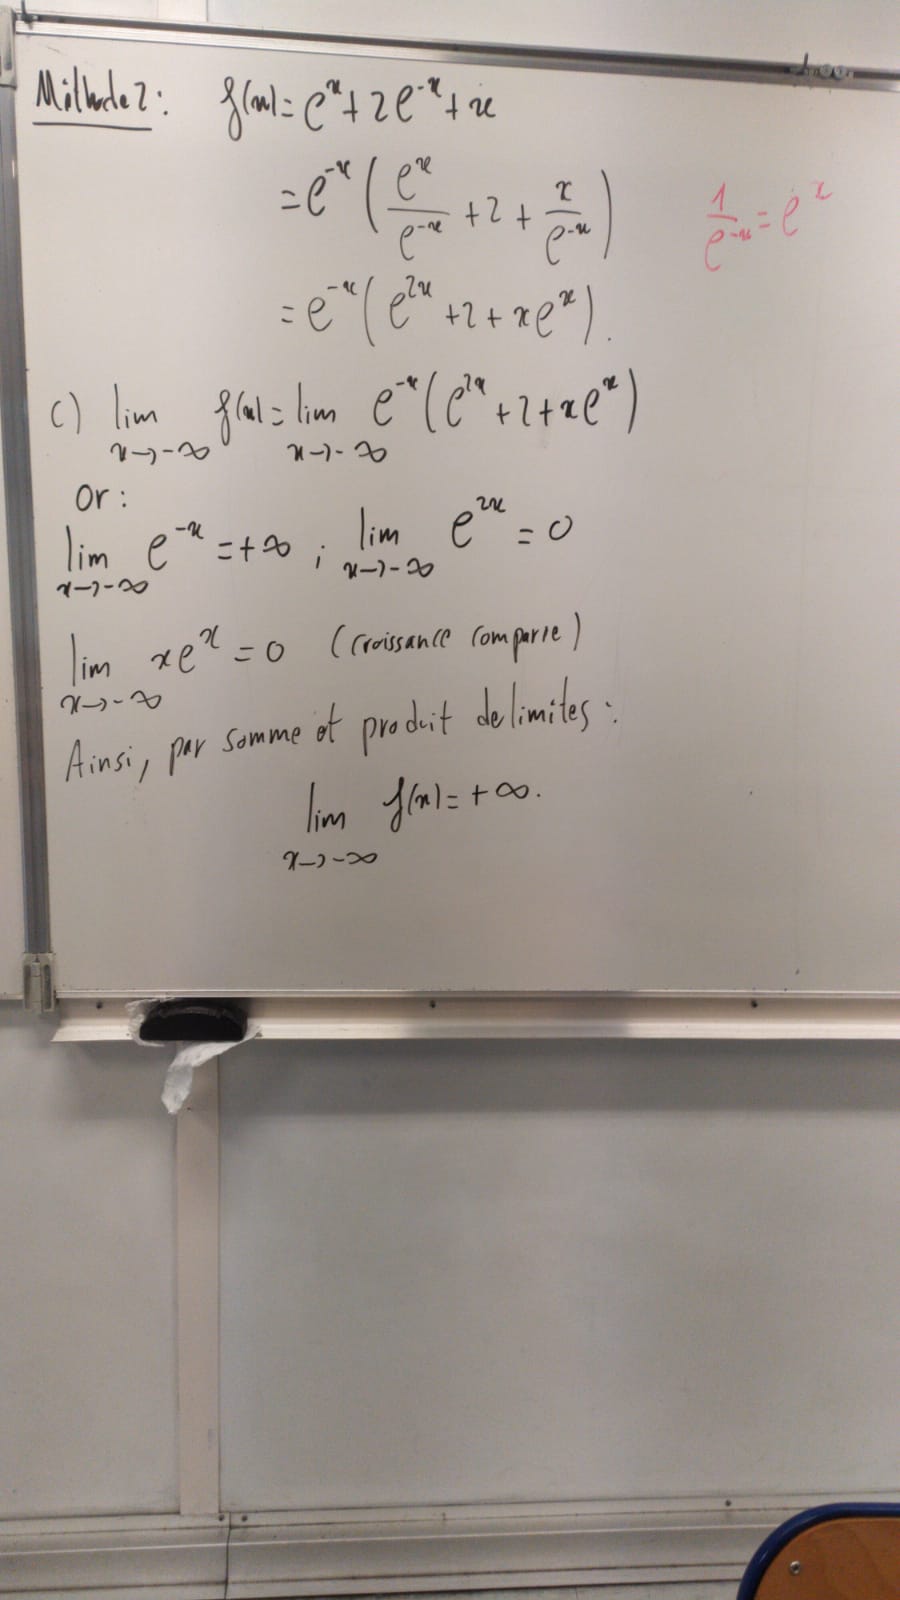 Méthode 2 : f(x) = e^x + 2e^{-x} + x
= e^{-x} ( e^x / e^{-x} + 2 + x / e^{-x} )
1 / e^{-x} = e^x
= e^{-x} ( e^{2x} + 2 + xe^x ).
c) lim x→-∞ f(x) = lim x→-∞ e^{-x} ( e^{2x} + 2 + xe^x )
or :
lim x→-∞ e^{-x} = +∞ ; lim x→-∞ e^{2x} = 0
lim x→-∞ xe^x = 0 (croissance comparée)
Ainsi, par somme et produit de limites :
lim x→-∞ f(x) = +∞.